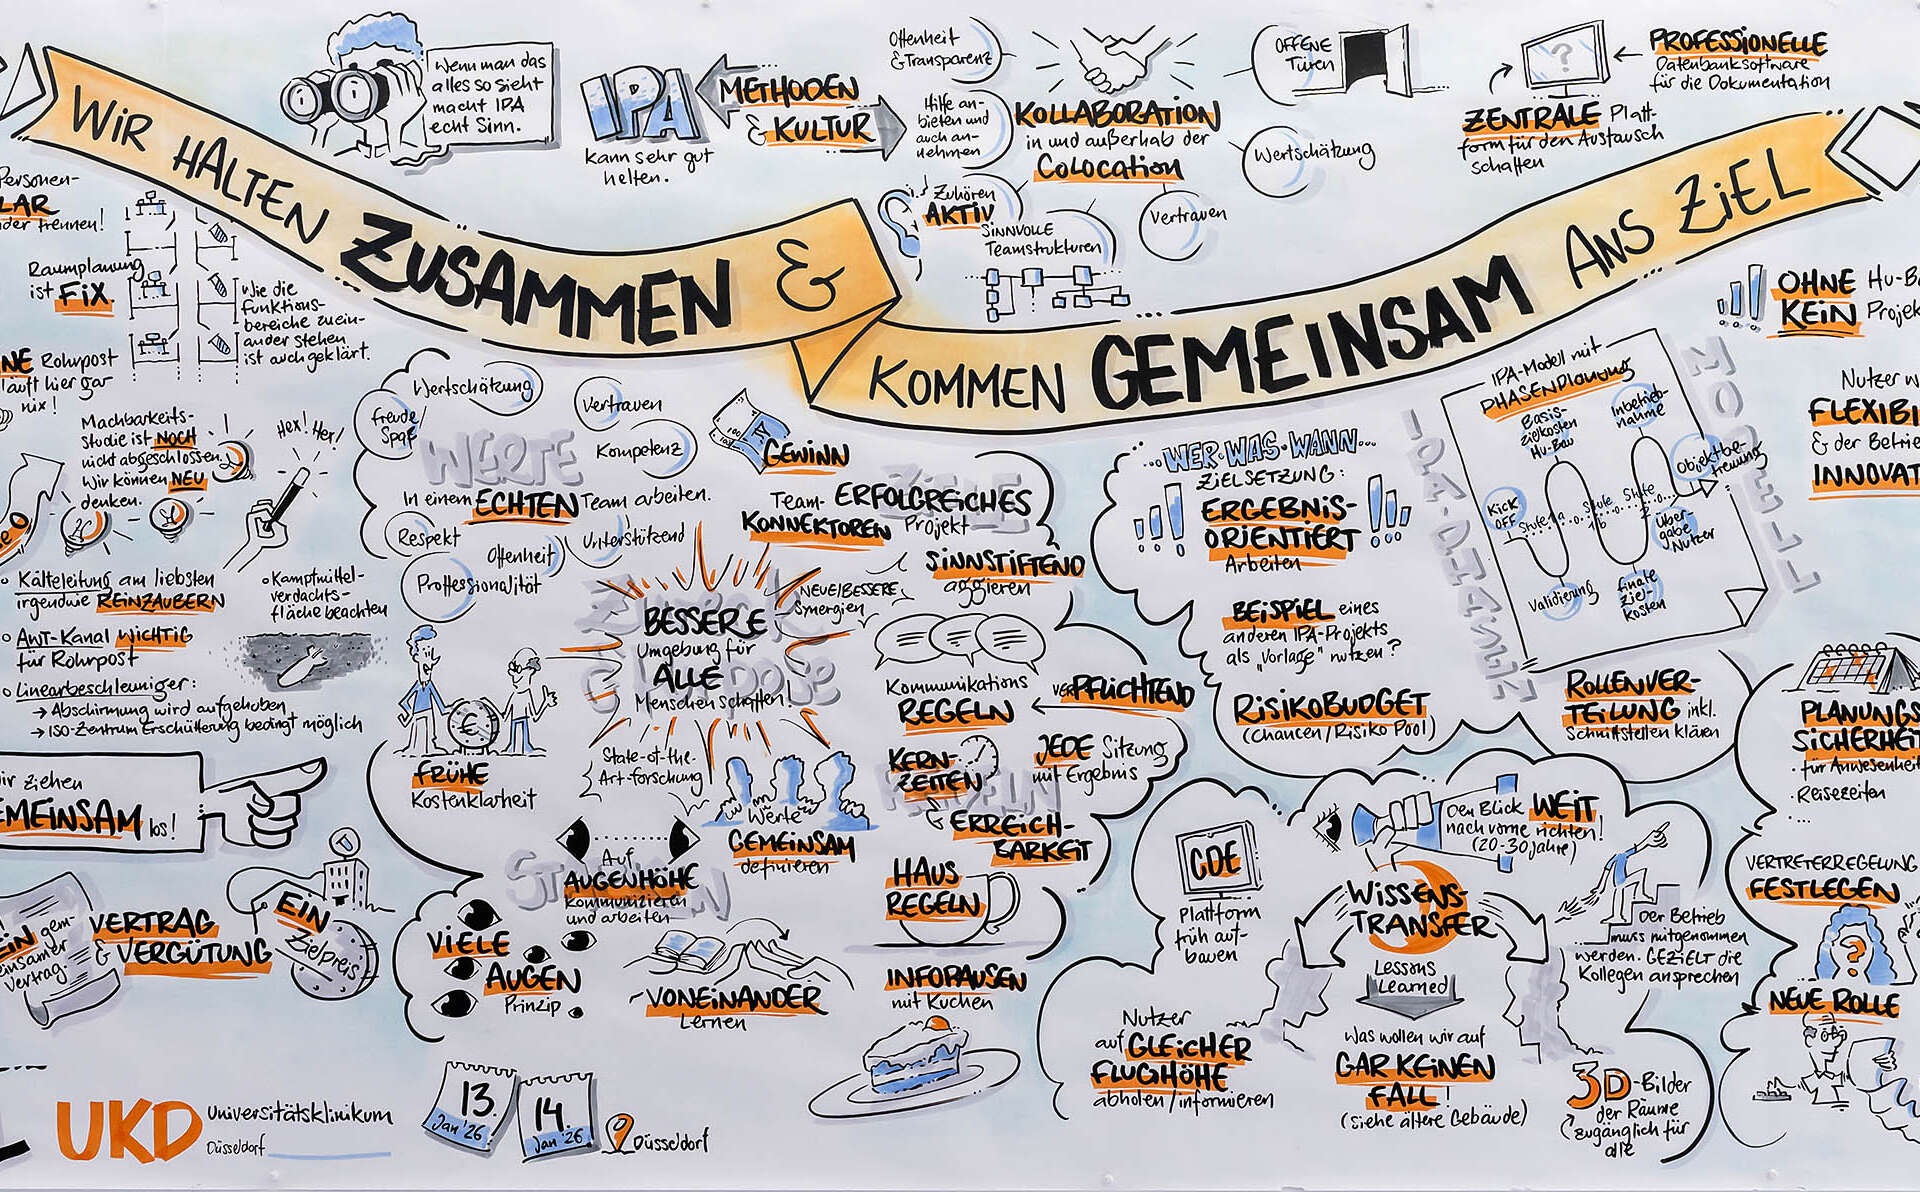 WIR HALTEN ZUSAMMEN &
KOMMEN GEMEINSAM ANS ZIEL
Wenn man das
alles so sieht
macht IPA
echt Sinn.
IPA
kann sehr gut
helfen.
METHODEN
& KULTUR
Offenheit
& Transparenz
Hilfe an-
bieten und
auch an-
nehmen
KOLLABORATION
in und außerhalb der
COLOCATION
Zuhören
AKTIV
SINNVOLLE
Teamstrukturen
Vertrauen
Wertschätzung
OFFENE
Türen
?
PROFESSIONELLE
Datenbanksoftware
für die Dokumentation
ZENTRALE Platt-
form für den Austausch
schaffen
Personen-
LAR
der trennen!
Raumplanung
ist FIX
Wie die
funktions-
bereiche zuein-
ander stehen
ist auch geklärt.
NE Rohrpost
läuft hier gar
nix!
Machbarkeits-
studie ist NOCH
nicht abgeschlossen.
Wir können NEU
denken.
Hex! Hex!
Kälteleitung am liebsten
irgendwie REINZAUBERN
AWT-Kanal WICHTIG
für Rohrpost
Linearbeschleuniger:
→ Abschirmung wird aufgehoben
→ ISO-Zentrum Erschütterung bedingt möglich
Kampfmittel-
verdachts-
fläche beachten
wir ziehen
GEMEINSAM los!
EIN gem-
einsamer
Vertrag.
VERTRAG
& VERGÜTUNG
EIN
Zielpreis
UKD Universitätsklinikum
Düsseldorf
13.
Jan '26
14.
Jan '26
Düsseldorf
WERTE
Wertschätzung
Freude
Spaß
Vertrauen
Kompetenz
In einem ECHTEN Team arbeiten.
Respekt
Offenheit
Unterstützend
Proffessionalität
100
GEWINN
ZIELE
Team-
KONNEKTOREN
ERFOLGREICHES
Projekt
SINNSTIFTEND
aggieren
NEUE/BESSERE
Synergien
BESSERE
Umgebung für
ALLE
Menschen schaffen!
State-of-the-
Art-forschung
€
FRÜHE
Kostenklarheit
Werte
GEMEINSAM
definieren
Auf
AUGENHÖHE
kommunizieren
und arbeiten
VIELE
AUGEN
Prinzip
VONEINANDER
Lernen
Kommunikations
REGELN
VERPFLICHTEND
KERN-
ZEITEN
JEDE Sitzung
mit Ergebnis
REGELN
ERREICH-
BARKEIT
HAUS
REGELN
INFOPAUSEN
mit Kuchen
...WER·WAS·WANN...
ZIELSETZUNG:
ERGEBNIS-
ORIENTIERT
Arbeiten
BEISPIEL eines
anderen IPA-Projekts
als „Vorlage" nutzen?
RISIKOBUDGET
(Chancen/Risiko Pool)
MODELL
IPA-Modell mit
PHASENPLANUNG
Basis-
zielkosten
HU-Bau
Inbetrieb-
nahme
Objektbe-
treuung
Kick
OFF
Stufe 1a
Stufe
1b
Stufe
2
Über-
gabe
Nutzer
Validierung
finale
Ziel-
kosten
ROLLENVER-
TEILUNG inkl.
Schnittstellen klären
OHNE HU-B
KEIN Projek
Nutzer w
FLEXIBI
& der Betrie
INNOVAT
PLANUNGS
SICHERHEIT
· für Anwesenheit
· Reisezeiten
VERTRETERREGELUNG
FESTLEGEN
?
NEUE ROLLE
CDE
Plattform
früh auf-
bauen
Den Blick WEIT
nach vorne richten!
(20-30 Jahre)
WISSENS-
TRANSFER
Lessons
Learned
Was wollen wir auf
GAR KEINEN
FALL!
(siehe ältere Gebäude)
Der Betrieb
muss mitgenommen
werden. GEZIELT die
Kollegen ansprechen
Nutzer
auf GLEICHER
FLUGHÖHE
abholen/informieren
3D-Bilder
der Räume
zugänglich für
alle